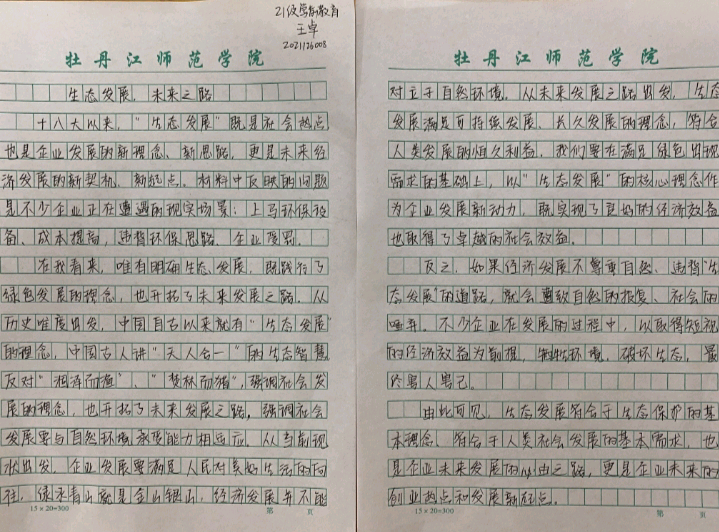 21级学前教育
王卓
2021126008
牡丹江师范学院
生态发展，未来之路
十八大以来，“生态发展”既是社会热点，
也是企业发展的新理念、新思路，更是未来经
济发展的新契机、新起点。材料中反映的问题
是不少企业正在遭遇的现实场景：上马环保设
备、成本提高，违背环保思路、企业受罚。
在我看来，唯有明确生态发展，既践行了
绿色发展的理念，也开拓了未来发展之路。从
历史维度出发，中国自古以来就有“生态发展”
的理念，中国古人讲“天人合一”的生态智慧，
反对“涸泽而渔”、“焚林而猎”，强调社会发
展的理念，也开拓了未来发展之路，强调社会
发展要与自然环境承受能力相适应。从当前现
状出发，企业发展要满足人民对美好生活的向
往，绿水青山就是金山银山，经济发展并不能
15×20=300
第 页
牡丹江师范学院
对立于自然环境。从未来发展之路出发，生态
发展满足可持续发展、长久发展的理念，符合
人类发展的恒久利益。我们要在满足绿色出现
需求的基础上，以“生态发展”的核心理念作
为企业发展新动力，既实现了良好的经济效益，
也取得了卓越的社会效益。
反之，如果经济发展不尊重自然、违背“生
态发展”的道路，就会遭致自然的报复、社会的
唾弃。不少企业在发展的过程中，以取得短视
的经济效益为前提，牺牲环境、破坏生态，最
终害人害己。
由此可见，生态发展符合于生态保护的基
本理念，符合于人类社会发展的基本需求，也
是企业未来发展的必由之路，更是企业未来的
创业热点和发展新起点。
15×20=300
第 页